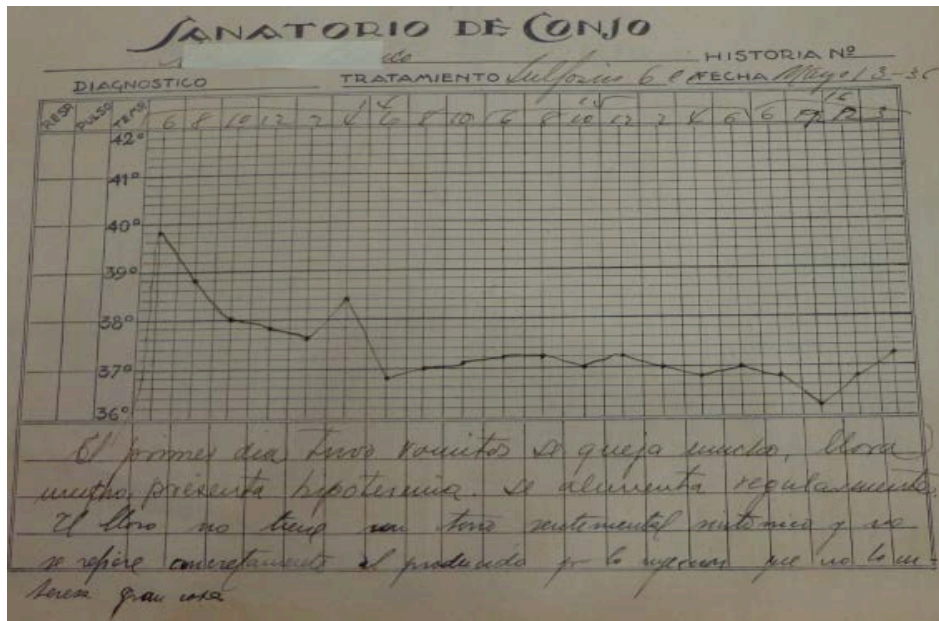 SANATORIO DE CONJO
HISTORIA Nº
DIAGNOSTICO TRATAMIENTO Sulfosin 6 c FECHA Mayo 13-35
RESP. PULSO TEMP.
14 15 15
6 8 10 12 2 4 6 8 10 6 8 10 12 2 4 6 6 12 3
42º
41º
40º
39º
38º
37º
36º
El primer dia tuvo vomitos se queja mucho, llora
mucho, presenta hipotermia. Se alimenta regularmente.
El lloro no tiene un tono sentimental sintonico y no
se refiere concretamente al producido por la que no la in-
teresa gran cosa